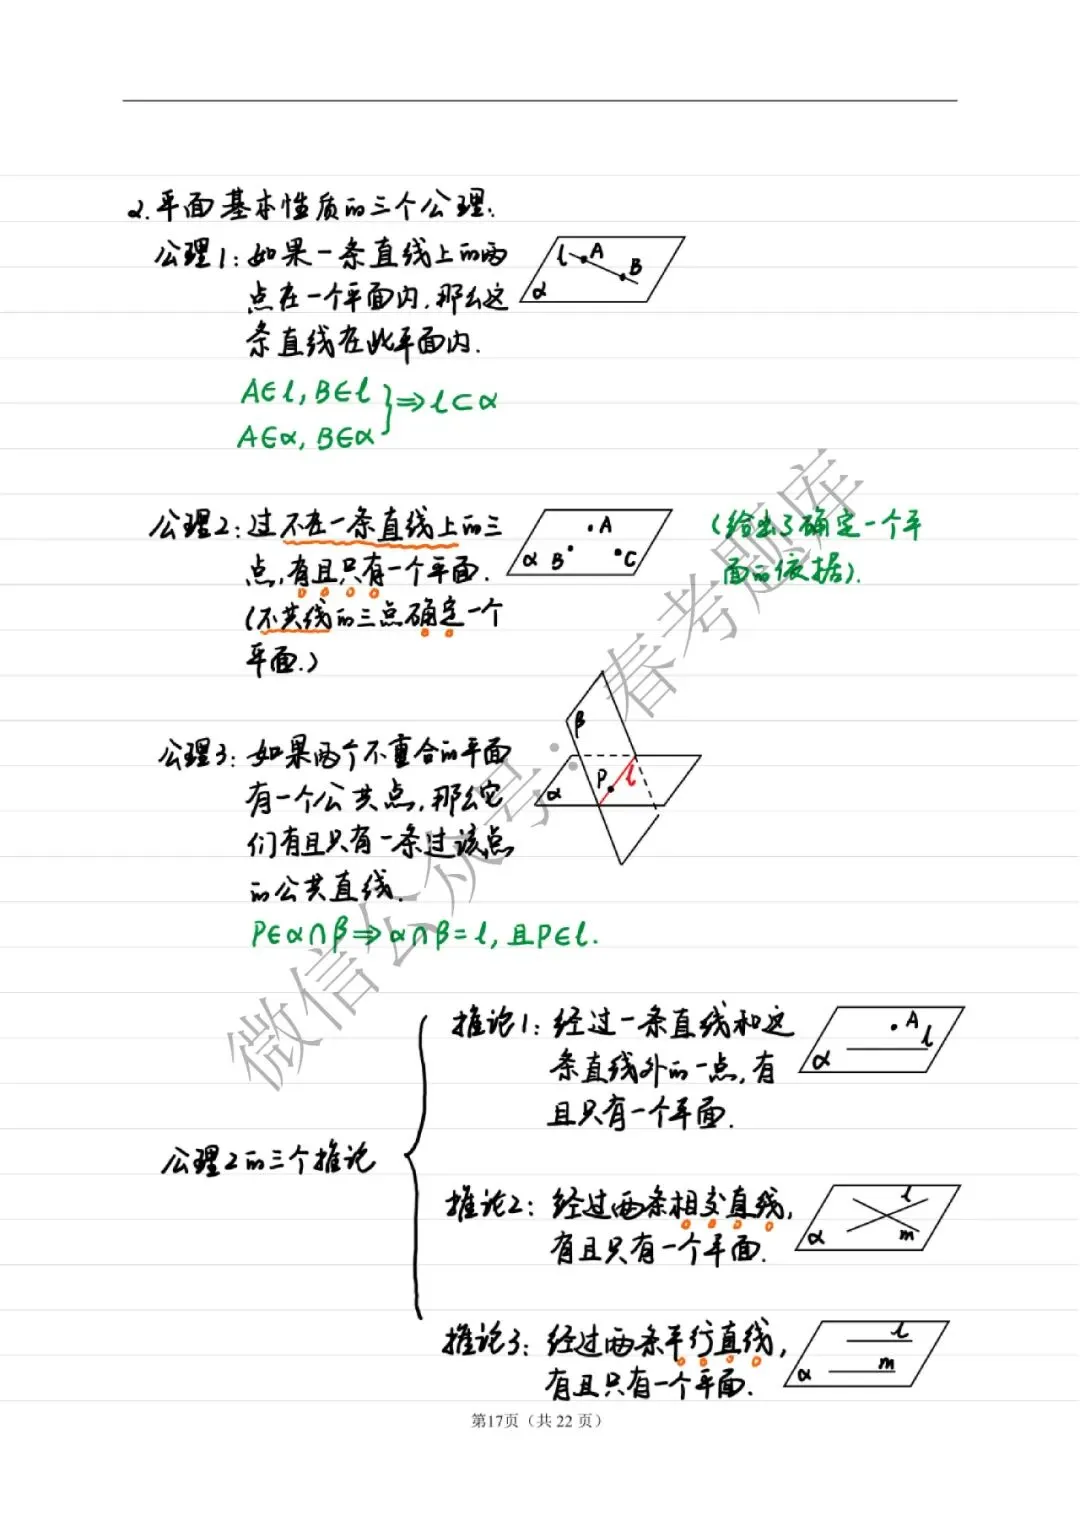 2.平面基本性质的三个公理:
公理1:如果一条直线上的两
点在一个平面内,那么这
条直线在此平面内.
l A B α
A∈l, B∈l
A∈α, B∈α
}⇒l⊂α
公理2:过不在一条直线上的三
点,有且只有一个平面.
(不共线的三点确定一个
平面.)
A α B C
(给出了确定一个平
面的依据).
公理3:如果两个不重合的平面
有一个公共点,那么它
们有且只有一条过该点
的公共直线.
β P l α
P∈α∩β⇒α∩β=l,且P∈l.
公理2的三个推论
推论1:经过一条直线和这
条直线外的一点,有
且只有一个平面.
A l α
推论2:经过两条相交直线,
有且只有一个平面.
l α m
推论3:经过两条平行直线,
有且只有一个平面.
l m α
微信公众号:春考题库
第17页(共 22 页)